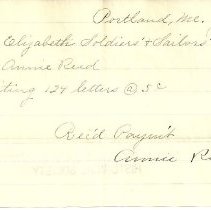 Portland, Me.
Elizabeth Soldiers' & Sailors'
Annie Reed
ting 124 letters @ 5c
Rec'd Paym't
Annie R